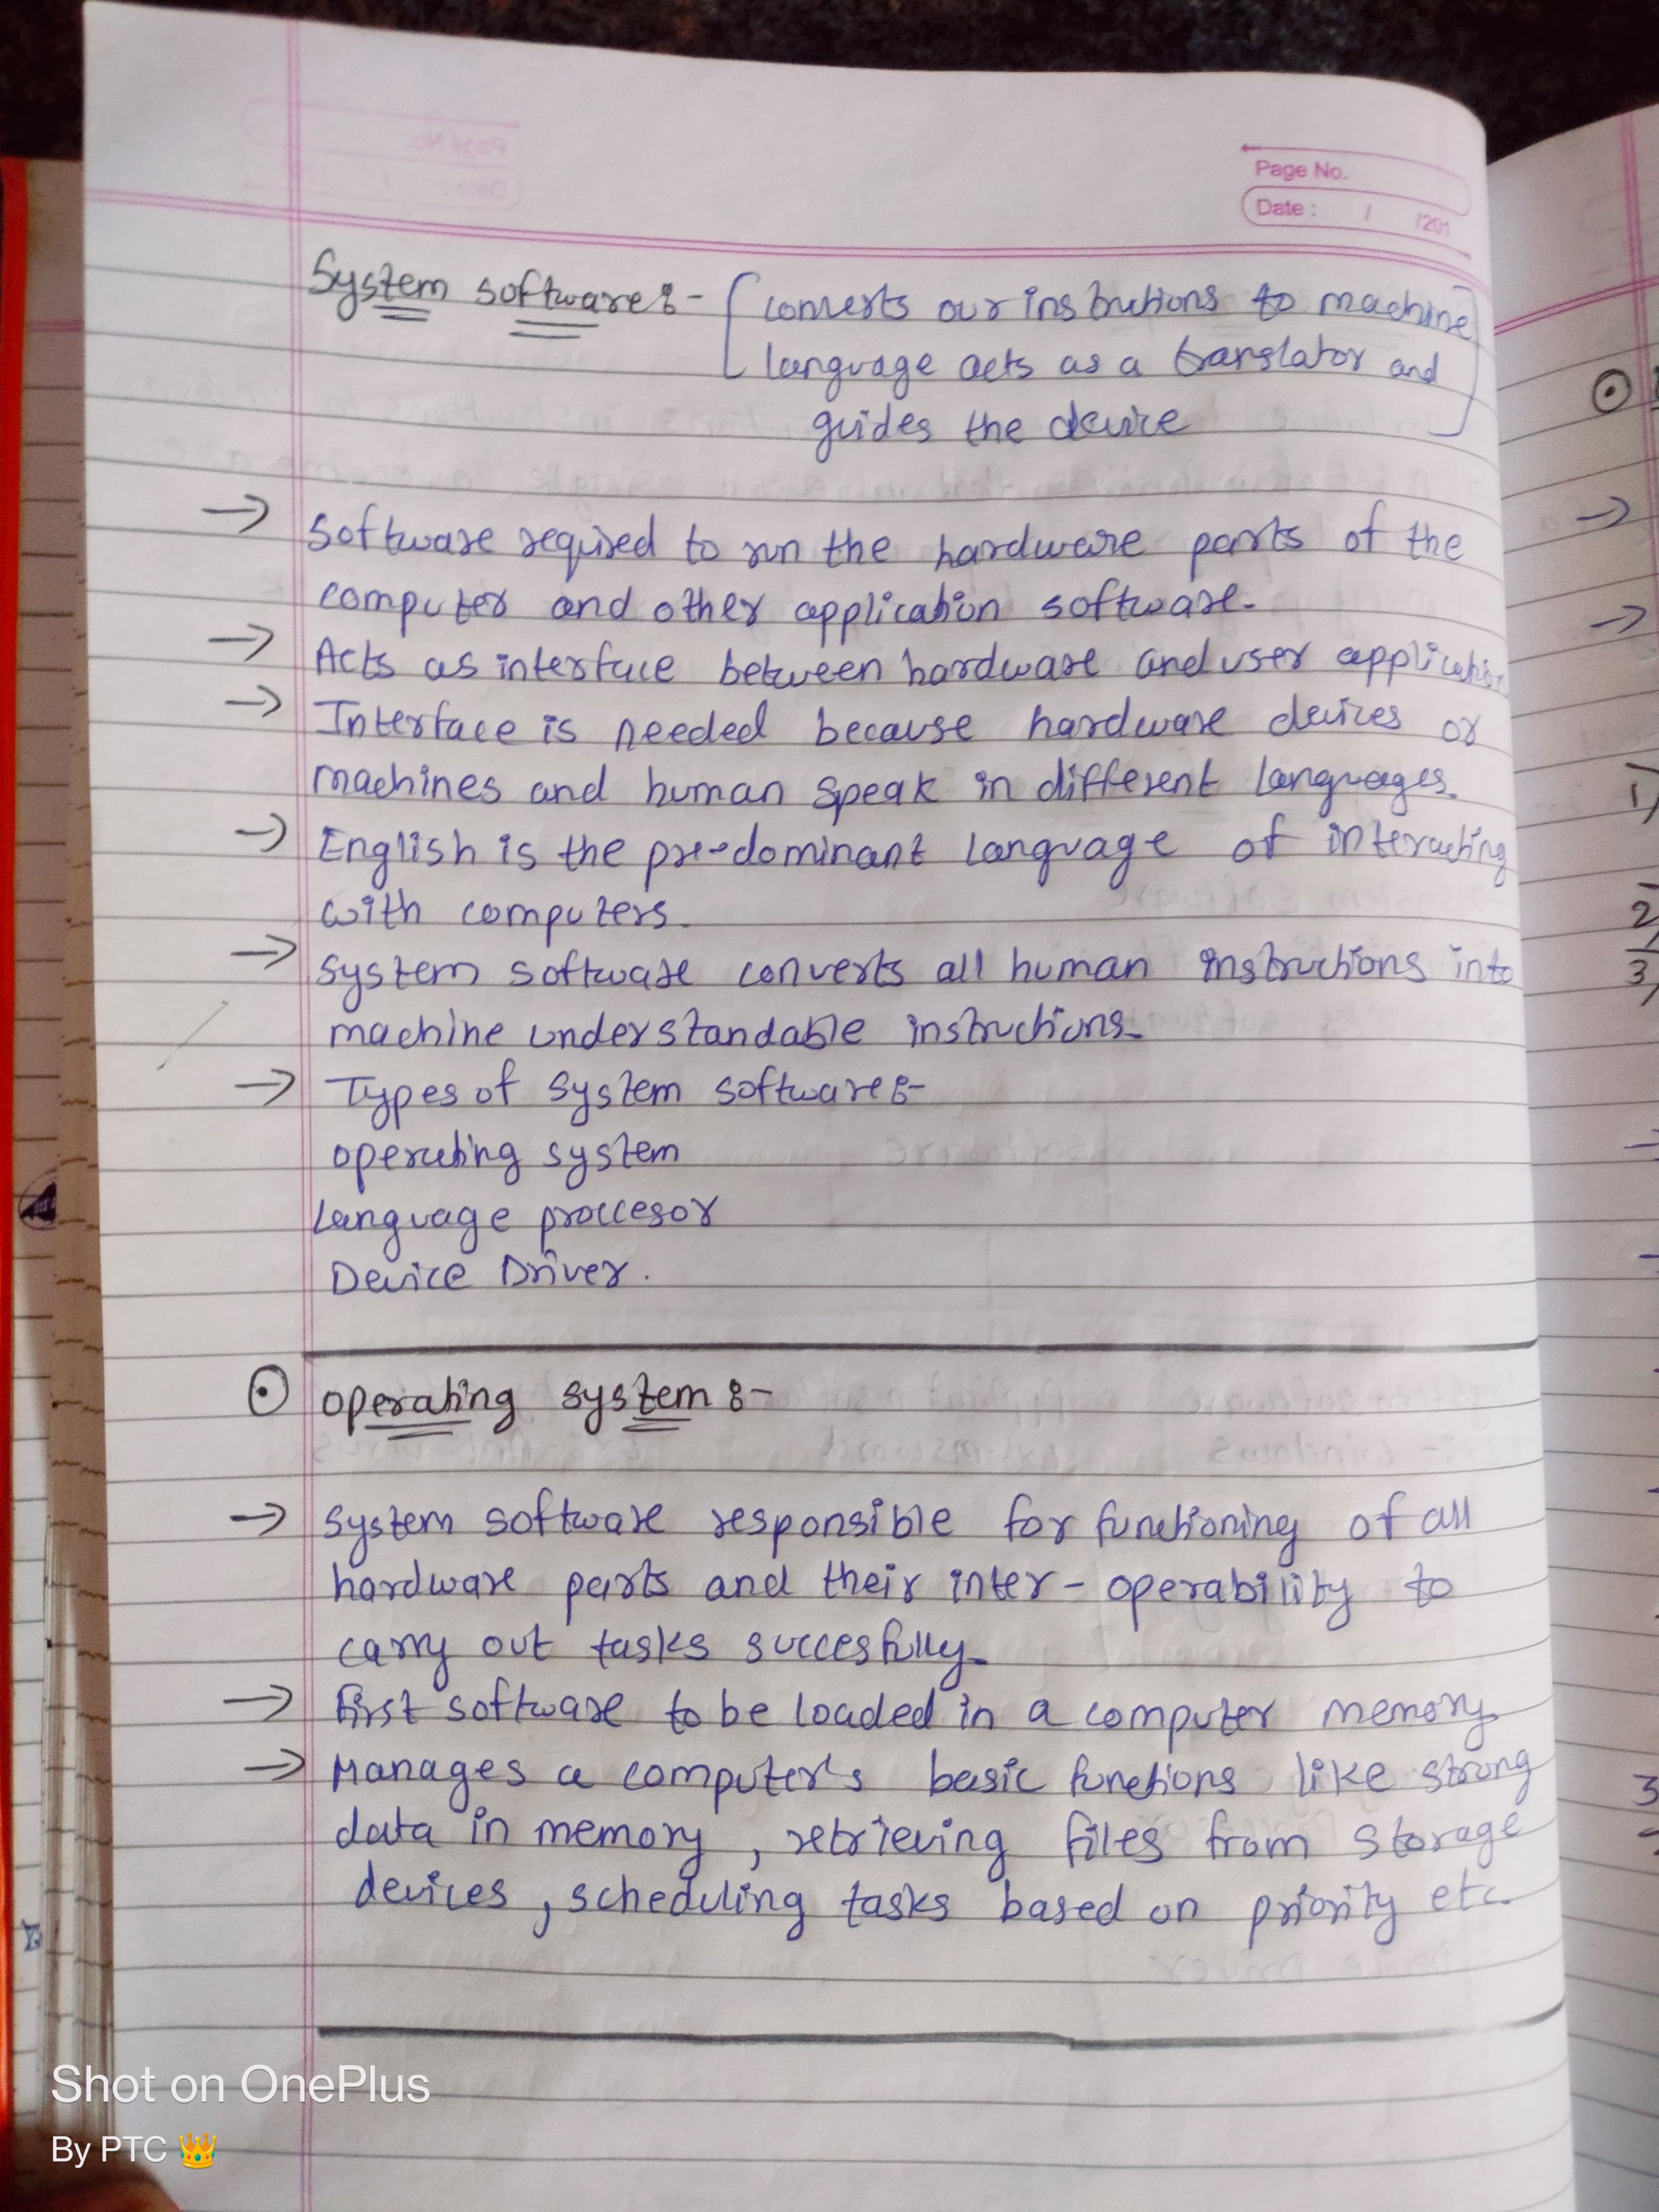 Page No.
Date : / /201
System software:- [converts our instructions to machine
language acts as a translator and
guides the device]
→ Software required to run the hardware parts of the
computer and other application software.
→ Acts as interface between hardware and user application
→ Interface is needed because hardware devices or
machines and human speak in different languages.
→ English is the pre-dominant language of interacting
with computers.
→ System software converts all human instructions into
machine understandable instructions.
→ Types of system software:-
operating system
Language proccesor
Device Driver.
⊙ operating system:-
→ System software responsible for functioning of all
hardware parts and their inter-operability to
carry out tasks succesfully.
→ First software to be loaded in a computer memory.
→ Manages a computer's basic functions like strong
data in memory, retrieving files from storage
devices, scheduling tasks based on priority etc.
1)
2)
3)
3
Shot on OnePlus
By PTC 👑